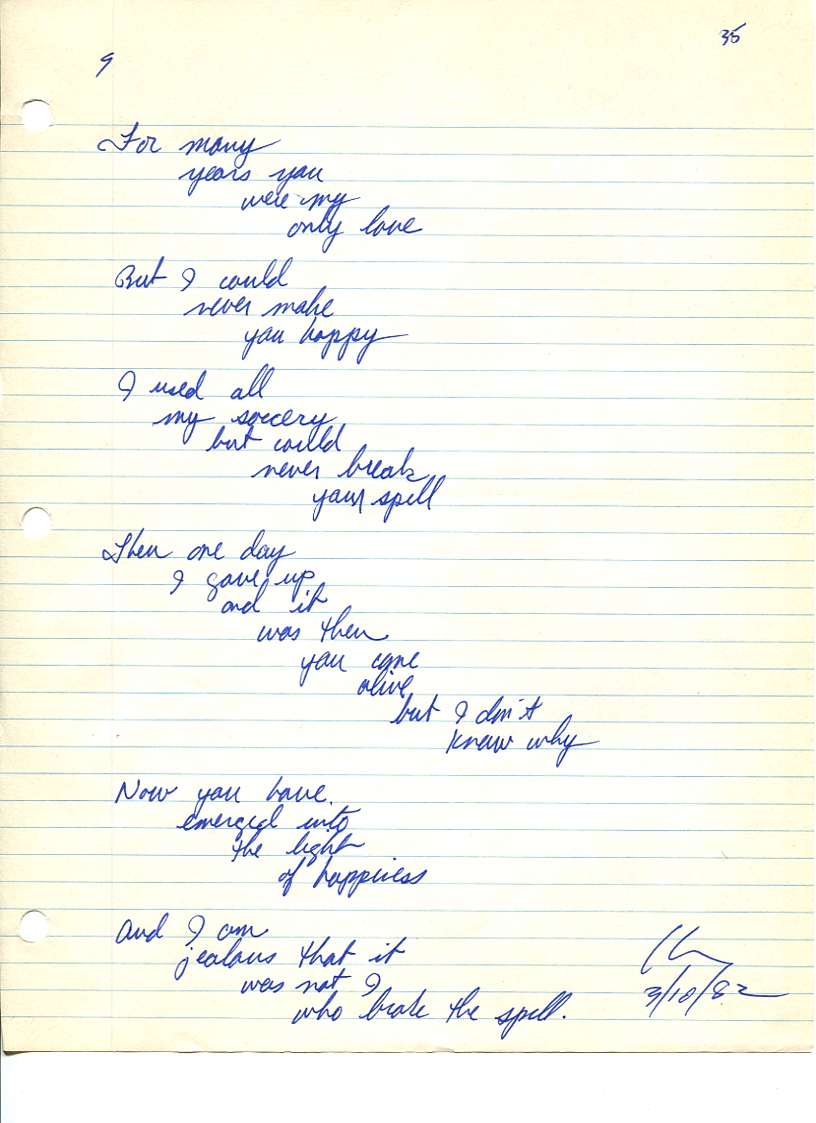 35
9
For many
years you
were my
only love
But I could
never make
you happy
I used all
my sorcery
but could
never break
your spell
Then one day
I gave up
and it
was then
you came
alive
but I don't
know why
Now you have
emerged into
the light
of happiness
And I am
jealous that it
was not I
who broke the spell.
3/10/82